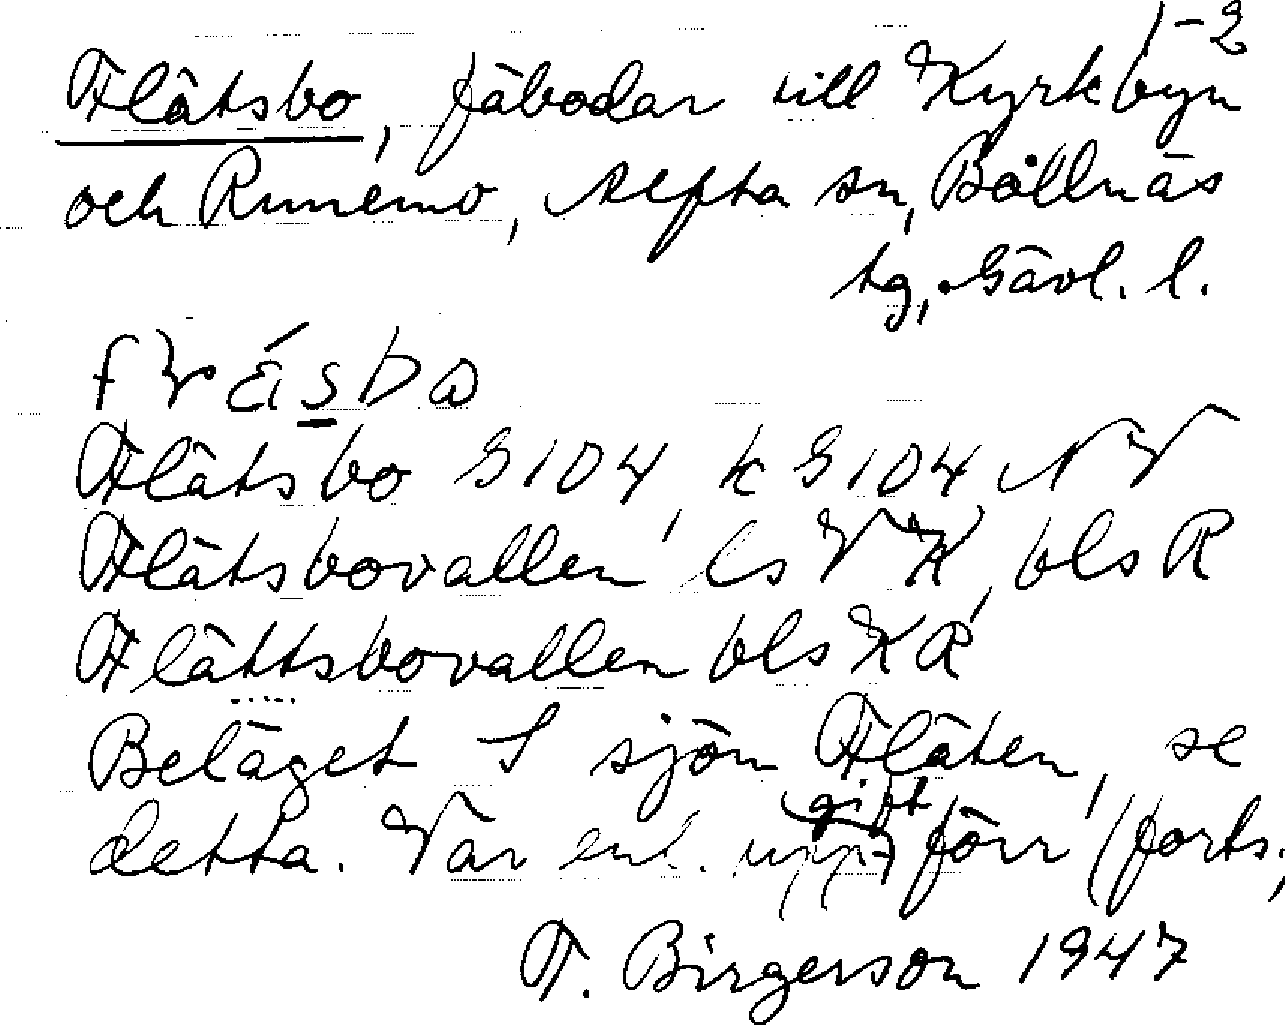 1-2
Flätsbo, fäbodar till Kyrkbyn
och Runemo, Alfta sn, Bollnäs
tg, Gävl. l.
Flätsbo G104, k G104 NV
Flätsbovallen ls VK, bls R
Flättsbovallen bls KR
Beläget S sjön Fläten, se
detta. Var enl. uppgift förr (forts.,
T. Birgerson 1947